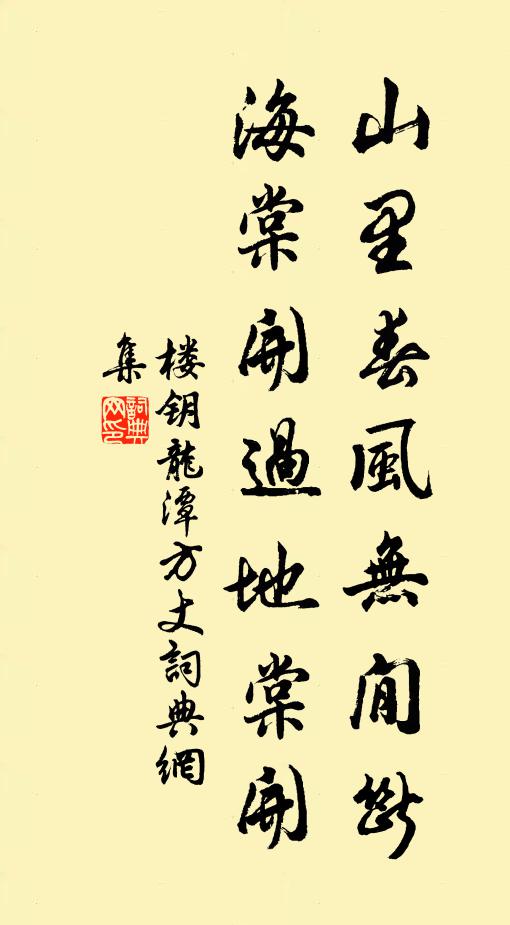 山里春風無間斷
海棠開過地棠開
楼钥龍潭方丈詞典網
集
詞典網印